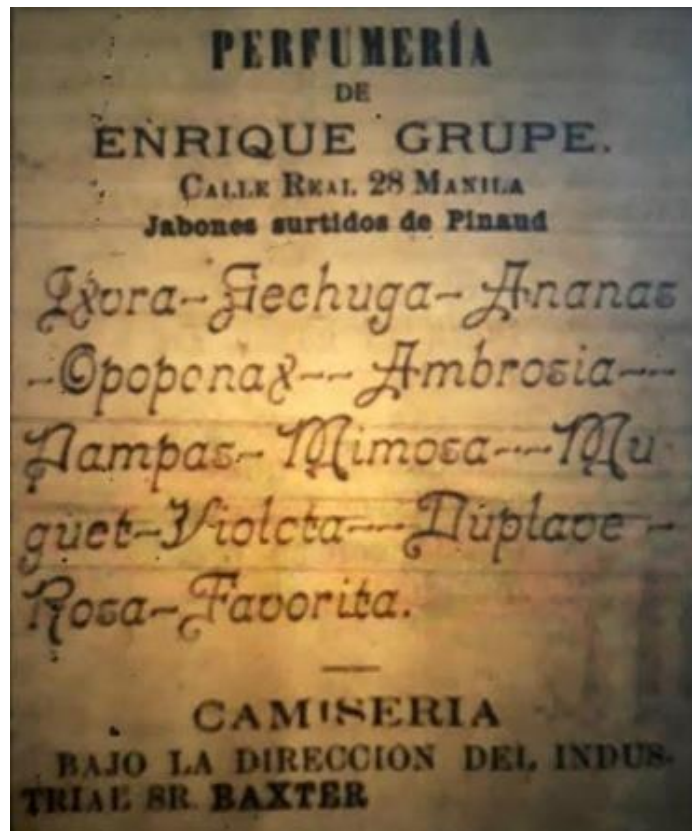 PERFUMERÍA
DE
ENRIQUE GRUPE.
CALLE REAL 28 MANILA
Jabones surtidos de Pinaud
Ixora-Lechuga-Ananas
-Opoponax--Ambrosia--
Pampas-Mimosa--Mu
guet-Violeta--Dúplave-
Rosa-Favorita.
CAMISERIA
BAJO LA DIRECCION DEL INDUS-
TRIAL SR. BAXTER